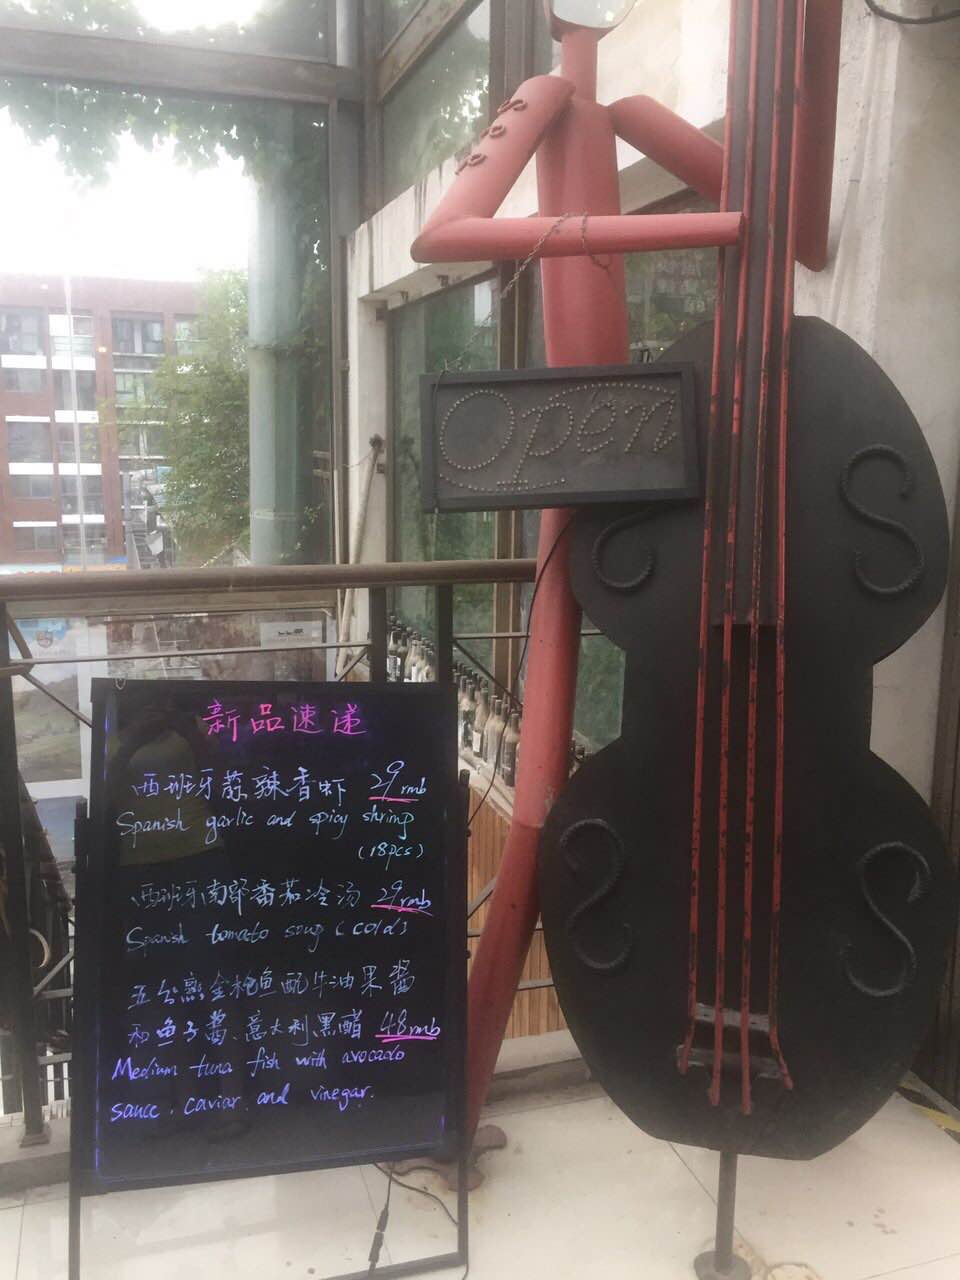 Open
新品速递
西班牙蒜辣香虾 29rmb
Spanish garlic and spicy shrimp
(18pcs)
西班牙南部番茄冷汤 29rmb
Spanish tomato soup (cold)
五分熟金枪鱼配牛油果酱
和鱼子酱、意大利黑醋 48rmb
Medium tuna fish with avocado
sauce, caviar and vinegar.